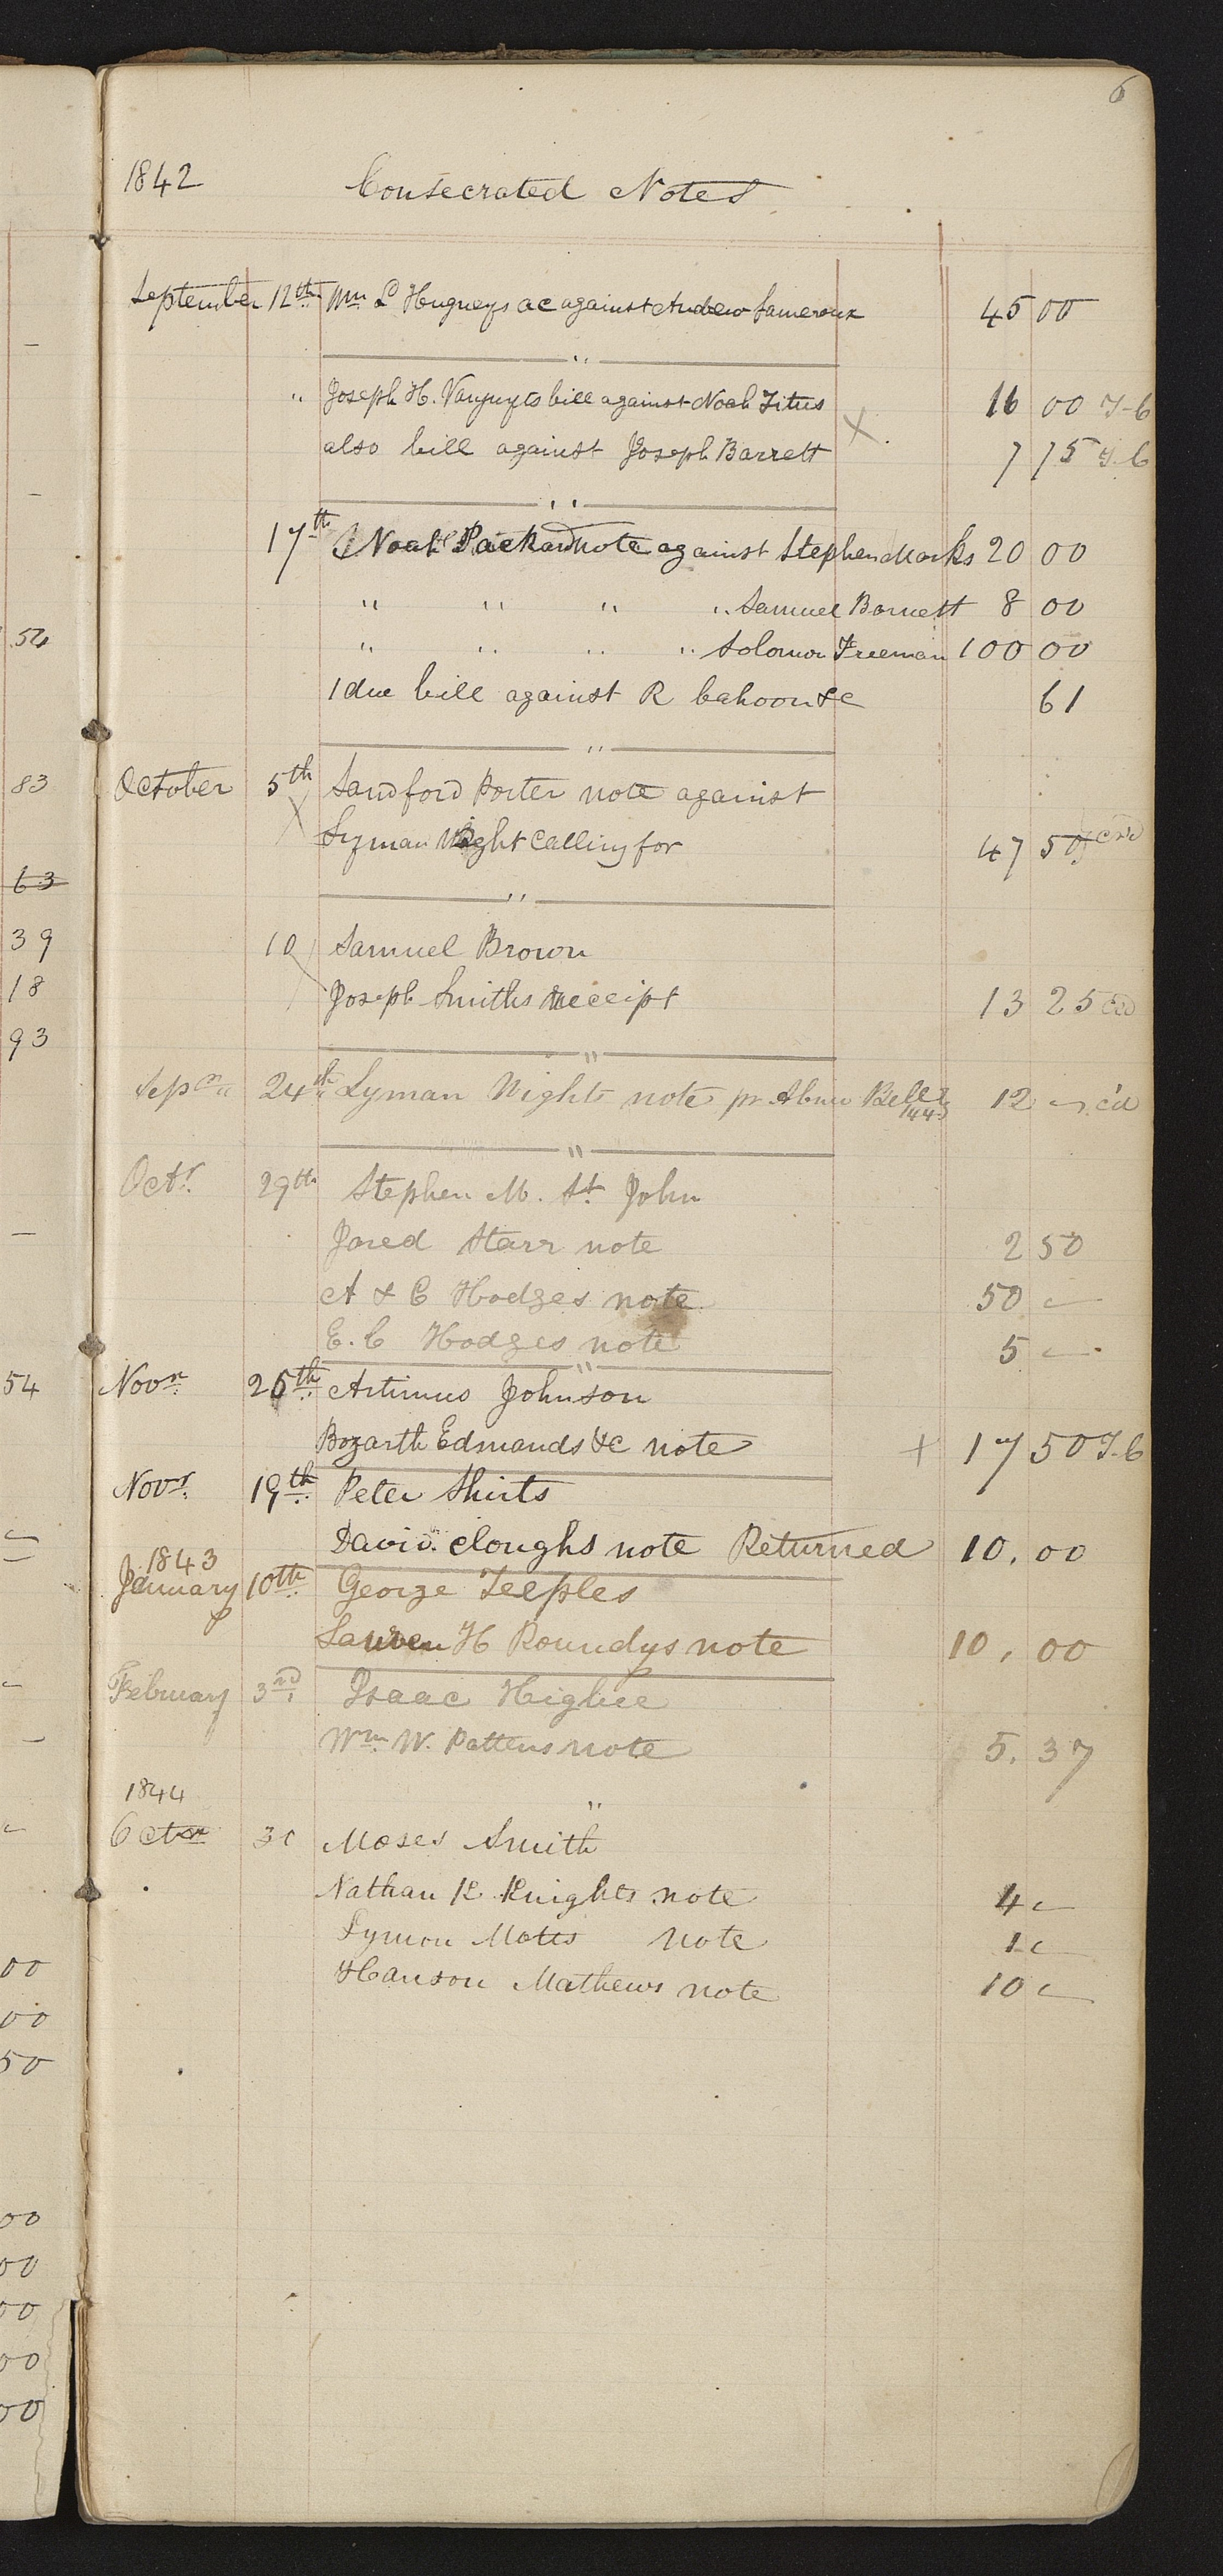 6
1842 Consecrated Notes
September 12th Wm L Hugneys ac against Andrew Lameroux 45 00
"
" Joseph H. Vannuyts bill against Noah Titus 16 00 T-b
also bill against Joseph Barrett X 7 75 T-b
"
17th Noah Packard note against Stephen Marks 20 00
" " " " Samuel Barnett 8 00
" " " " Solomon Freeman 100 00
1 due bill against R Cahoon &c 61
"
October 5th Sandford Porter note against
X Lyman Wight Calling for 47 50
"
10 Samuel Brown
Joseph Smiths Receipt 13 25
"
Sepr " 24th Lyman Wights note pr Abner Bell 12 —
"
Octr. 29th Stephen M. St. John
Jared Starr note 2 50
A & C Hodges note 50 —
E. C Hodges note 5 —
"
Novr. 26th Artimus Johnson
Bozarth Edmands &c note + 17 50 T-b
Novr. 19th Peter Shirts
David Cloughs note Returned 10.00
1843
January 10th George Teeples
Lauren H Roundys note 10.00
February 3rd Isaac Higbee
Wm. W. Pattens note 5.37
1844
"
Octr 30 Moses Smith
Nathan K Knights note 4 —
Lymon Motts note 1 —
Hanson Mathews note 10 —
54
83
63
39
18
93
54
00
00
50
00
00
00
00
00